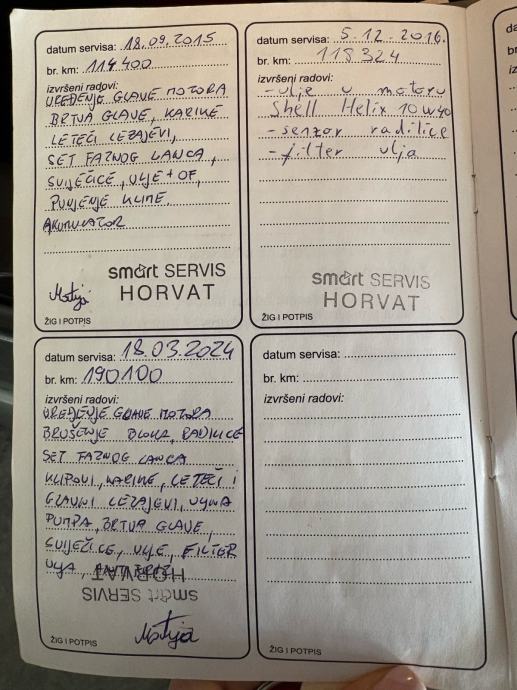 datum servisa: 18.09.2015
br. km: 114400
izvršeni radovi:
UREĐENJE GLAVE MOTORA
BRTVA GLAVE, KARIKE
LETEĆI LEŽAJEVI,
SET FAZNOG LANCA,
SVIJEĆICE, ULJE + OF,
PUNJENJE KLIME.
AKUMULATOR
smart SERVIS
HORVAT
Matija
ŽIG I POTPIS
datum servisa: 5.12.2016.
br. km: 118324
izvršeni radovi:
- ulje u motoru
Shell Helix 10w40
- senzor radilice
- filter ulja
smart SERVIS
HORVAT
ŽIG I POTPIS
datum servisa: 18.03.2024
br. km: 190100
izvršeni radovi:
UREĐENJE GLAVE MOTORA
BRUŠENJE BLOKA, RADILICE
SET FAZNOG LANCA
KLIPOVI, KARIKE, LETEĆI I
GLAVNI LEŽAJEVI, ULJNA
PUMPA, BRTVA GLAVE,
SVIJEĆICE, ULJE, FILTER
ULJA, ANTIFRIZ
HORVAT
smart SERVIS
Matija
ŽIG I POTPIS
datum servisa:
br. km:
izvršeni radovi:
ŽIG I POTPIS